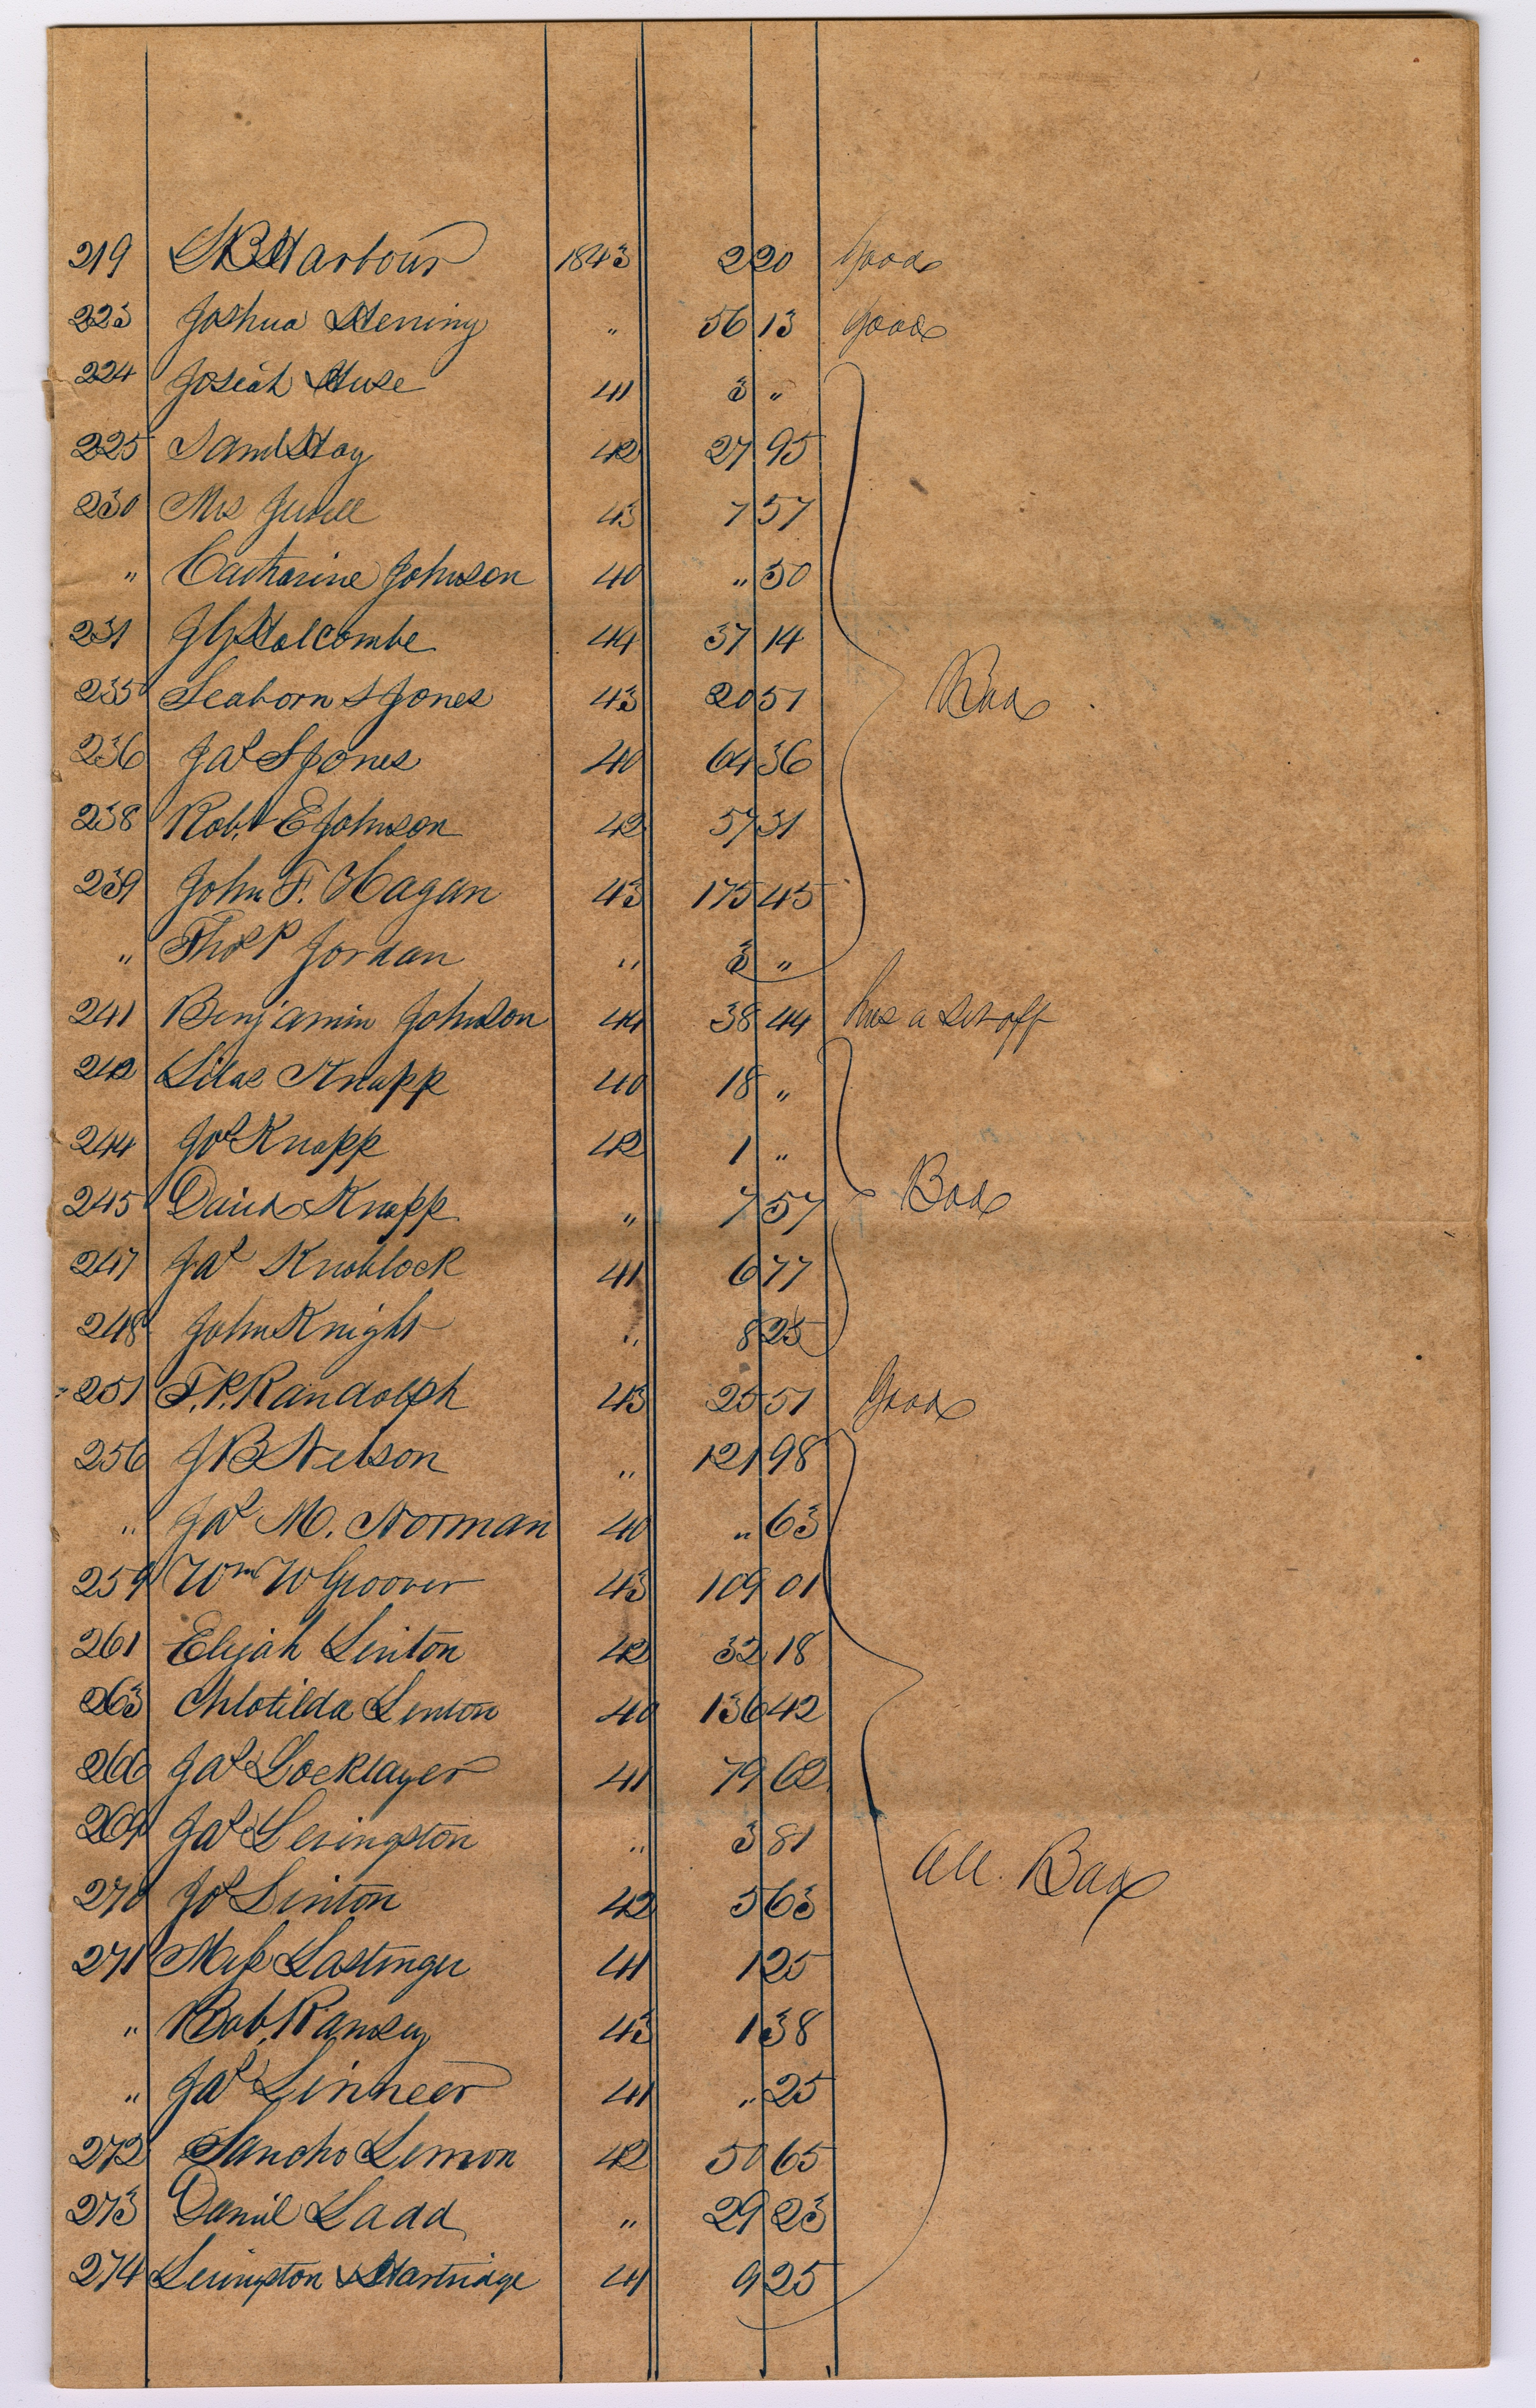 219 S B Harbour 1843 2 20 Good
223 Joshua Hening " 56 13 Good
224 Josiah Huse 41 3 "
225 Saml Hay 42 27 95
230 Mrs 43 7 57
" Catharine Johnson 40 " 50
231 J G Holcombe 44 37 14
235 Seaborn S Jones 43 20 51 Bad
236 Jas S Jones 40 64 36
238 Robt E Johnson 42 57 31
239 John F. Hagan 43 175 45
" Thos P Jordan " 3 "
241 Benjamin Johnson 44 38 44 has a set off
242 Silas Knapp 40 18 "
244 Jos Knapp 42 1 "
245 David Knapp " 7 57 Bad
247 Jas Knoblock 41 6 77
248 John Knight " 8 25
251 T. P. Randolph 43 25 51 Good
256 J B Nelson " 121 98
" Jas M. Norman 40 " 63
259 Wm W Groover 43 109 01
261 Elijah Linton 42 32 18
263 Chlotilda Linton 40 136 42
266 Jas Locklayer 41 79 62
269 Jas Levingston " 3 81
270 Jos Linton 42 5 63 All Bad
271 Lastinger 41 1 25
" Bob Ramsey 43 1 38
" Jas Linneer 41 " 25
272 Sancho Lemon 42 50 65
273 Daniel Ladd " 29 23
274 Levingston & Hartridge 41 9 25